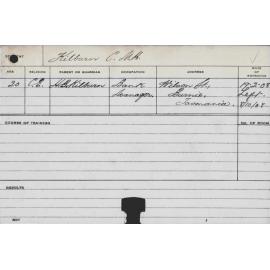 STUDENT Kilburn C. M. H.
AGE RELIGION PARENT OR GUARDIAN OCCUPATION ADDRESS DATE OF ENTRANCE
20 C.E. H.E. Kilburn Bank Wilson St, 17.2.08
Manager Burnie, Left
Tasmania 8/10/08
COURSE OF TRAINING NO. OF ROOM
RESULTS